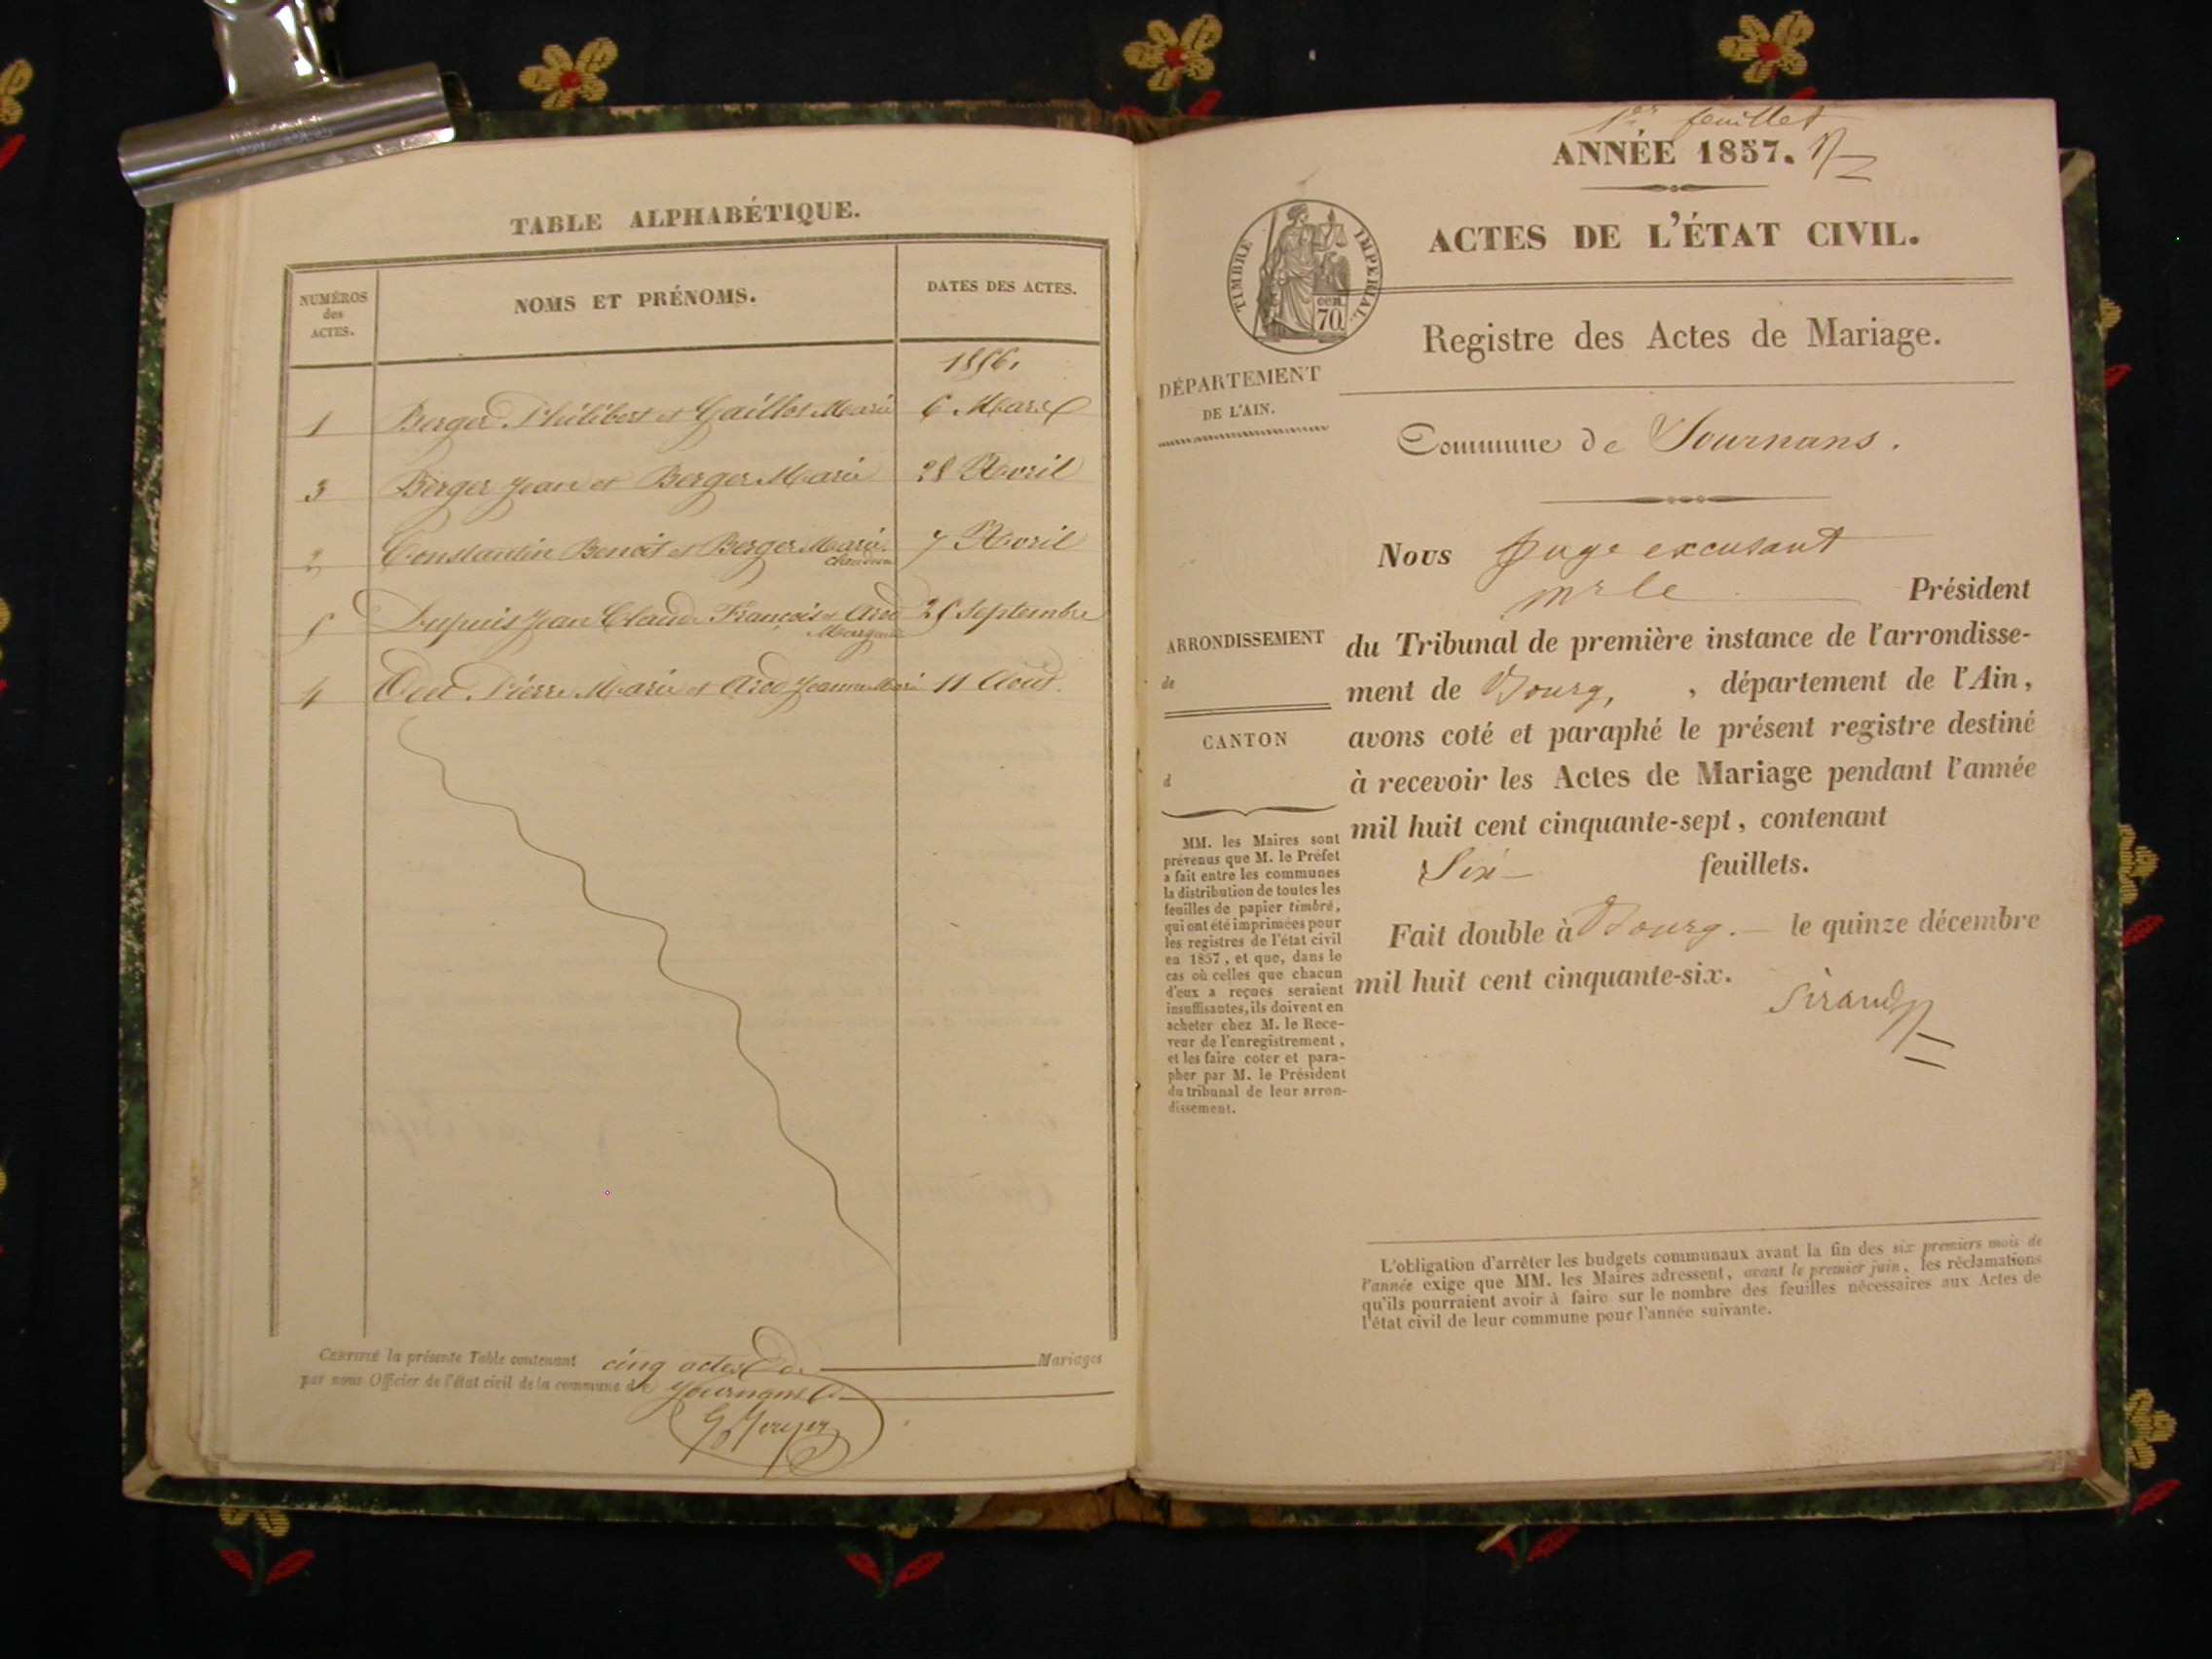 TABLE ALPHABÉTIQUE.
NUMÉROS
des
ACTES.
NOMS ET PRÉNOMS.
DATES DES ACTES.
1856.
1 Berger Philibert et Gaillot Marie 6 Mars
3 Berger Jean et Berger Marie 28 Avril
2 Constantin Benoit et Berger Marie 7 Avril
5 Dupuis Jean Claude François et 25 Septembre
4 Pierre Marie et Jeanne Marie 11 Août.
CERTIFIÉ la présente Table contenant cinq actes de Mariages
par nous Officier de l'état civil de la commune de Journans
1er feuillet
ANNÉE 1857.
ACTES DE L'ÉTAT CIVIL.
TIMBRE IMPERIAL.
cen.
70
Registre des Actes de Mariage.
DÉPARTEMENT
DE L'AIN.
Commune de Journans.
Nous Juge excusant
Mr le Président
ARRONDISSEMENT
de
CANTON
d
du Tribunal de première instance de l'arrondisse-
ment de Bourg, , département de l'Ain,
avons coté et paraphé le présent registre destiné
à recevoir les Actes de Mariage pendant l'année
mil huit cent cinquante-sept, contenant
Six feuillets.
Fait double à Bourg. le quinze décembre
mil huit cent cinquante-six.
Sirand
MM. les Maires sont
prévenus que M. le Préfet
a fait entre les communes
la distribution de toutes les
feuilles de papier timbré,
qui ont été imprimées pour
les registres de l'état civil
en 1857, et que, dans le
cas où celles que chacun
d'eux a reçues seraient
insuffisantes, ils doivent en
acheter chez M. le Rece-
veur de l'enregistrement,
et les faire coter et para-
pher par M. le Président
du tribunal de leur arron-
dissement.
L'obligation d'arrêter les budgets communaux avant la fin des six premiers mois de
l'année exige que MM. les Maires adressent, avant le premier juin, les réclamations
qu'ils pourraient avoir à faire sur le nombre des feuilles nécessaires aux Actes de
l'état civil de leur commune pour l'année suivante.